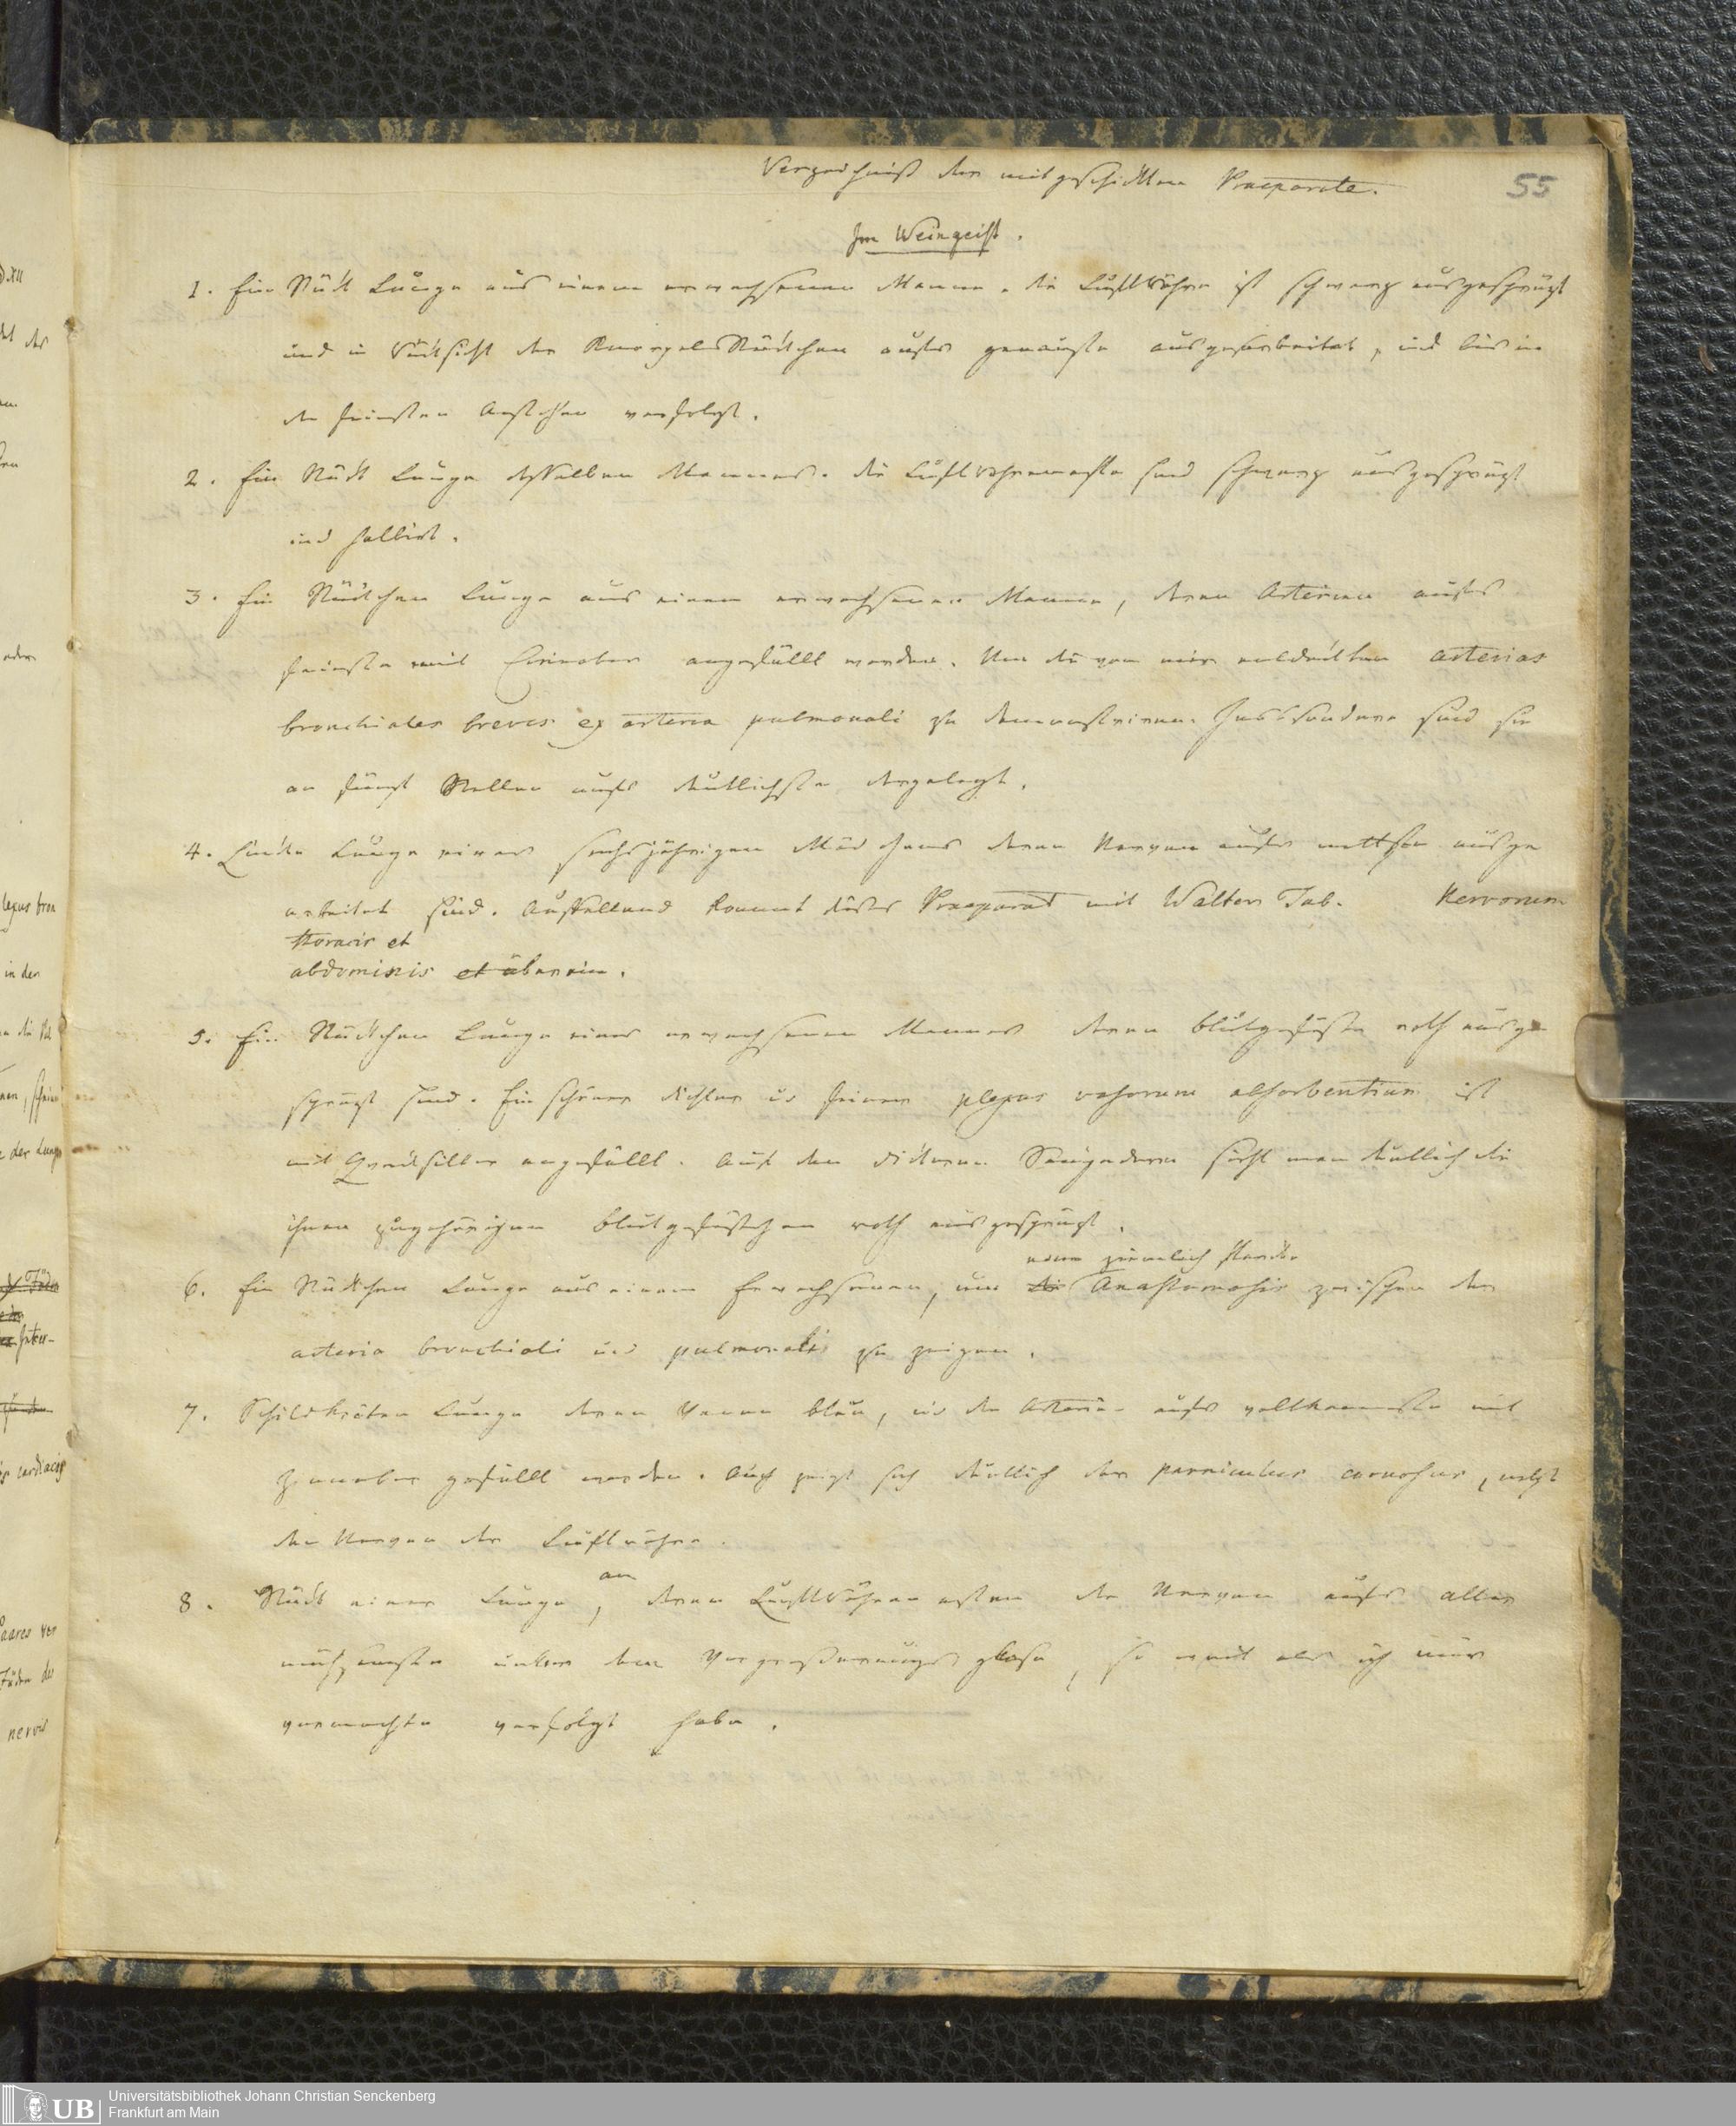 Verzeichniß der mitgeschickten Praeparate.
55
Im Weingeist.
1. Ein Stück Lunge aus einem erwachsenen Manne. die Luftröhre ist schwarz ausgesprüzt
und in Rücksicht der Knorpel Stückchen aufs genauste ausgearbeitet, und bis in
die feinsten Aestchen verfolgt.
2. Ein Stück Lunge desselben Mannes. die Luftrohrenaeste sind schwarz ausgesprüzt
und halbirt.
3. Ein Stückchen Lunge aus einem erwachsenen Manne, deren Arterien aufs
feinste mit Cinnober angefüllt worden. Um die von mir entdeckten arterias
bronchiales breves ex arteria pulmonali zu demonstriren. Insbesondere sind sie
an fünf Stellen aufs deutlichste dargelegt.
4. Linke Lunge eines sechsjährigen Mädchens deren Nerven aufs netteste ausge
arbeitet sind. Auffallend kommt dieses Praeparat mit Walters Tab. Nervorum
thoracis et
abdominis et überein.
5. Ein Stückchen Lunge eines erwachsenen Mannes deren Blutgefäße roth ausge
sprüzt sind. Ein schöner dichter u. feiner plexus vasorum absorbentium ist
mit Quecksilber angefüllt. Auf den dickern Saugadern sieht man deutlich die
ihnen zugehörigen Blutgefäßchen roth ausgesprüzt.
eine ziemlich starke
6. Ein Stückchen Lunge aus einem Erwachsenen, um die Anastomosis zwischen der
arteria bronchiali und pulmonali zu zeigen.
7. Schildkröten Lunge deren Venen blau, und die Arterien aufs vollkommenste mit
Zinnober gefüllt worden. Auch zeigt sich deutlich der panniculus carnosus, nebst
den Nerven der Luftröhre.
an
8. Stück einer Lunge, deren Luftröhren esten die Nerven aufs aller
mühsamste unter dem Vergroßerungs glase, so weit als ich nur
vermochte verfolgt habe.
Universitätsbibliothek Johann Christian Senckenberg
UB Frankfurt am Main